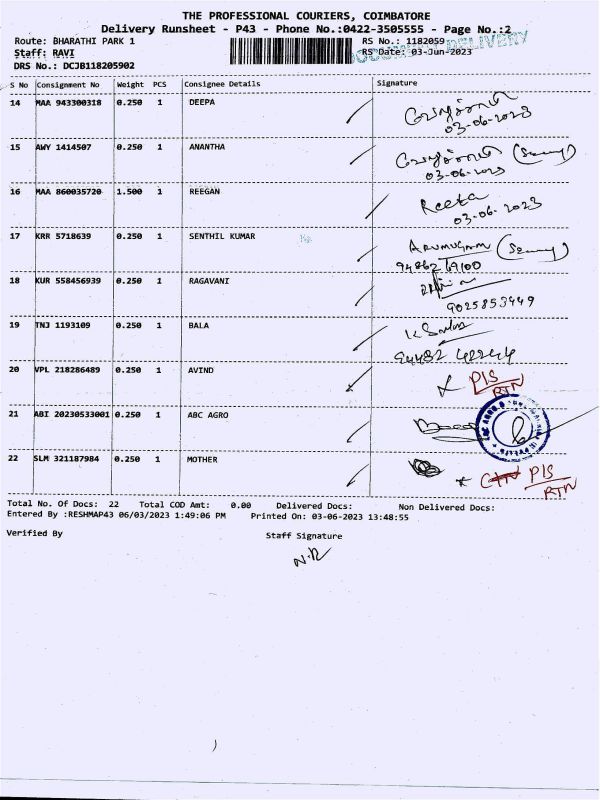 THE PROFESSIONAL COURIERS, COIMBATORE
Delivery Runsheet - P43 - Phone No.:0422-3505555 - Page No.:2
Route: BHARATHI PARK 1 RS No.: 1182059
Staff: RAVI RS Date: 03-Jun-2023
DELIVERY
DRS No.: DCJB118205902
S No Consignment No Weight PCS Consignee Details Signature
14 MAA 943300318 0.250 1 DEEPA
03-06-2023
15 AWY 1414507 0.250 1 ANANTHA
03-06-2023
16 MAA 860035720 1.500 1 REEGAN Reeta
03-06-2023
17 KRR 5718639 0.250 1 SENTHIL KUMAR ARUMUGAM
94862 69100
18 KUR 558456939 0.250 1 RAGAVANI
9025853449
19 TNJ 1193109 0.250 1 BALA
94432 42244
20 VPL 218286489 0.250 1 AVIND x PIS
RTN
21 ABI 20230533001 0.250 1 ABC AGRO
22 SLM 321187984 0.250 1 MOTHER x PIS
RTN
Total No. Of Docs: 22 Total COD Amt: 0.00 Delivered Docs: Non Delivered Docs:
Entered By :RESHMAP43 06/03/2023 1:49:06 PM Printed On: 03-06-2023 13:48:55
Verified By Staff Signature
N.R